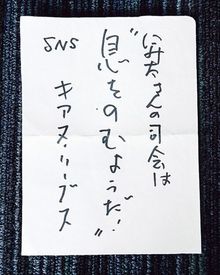 さんの司会は
“息をのむようだ!”
SNS
キアヌ・リーブス